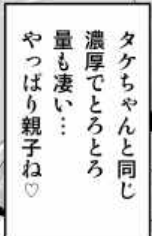 タケちゃんと同じ
濃厚でとろとろ
量も凄い…
やっぱり親子ね♡